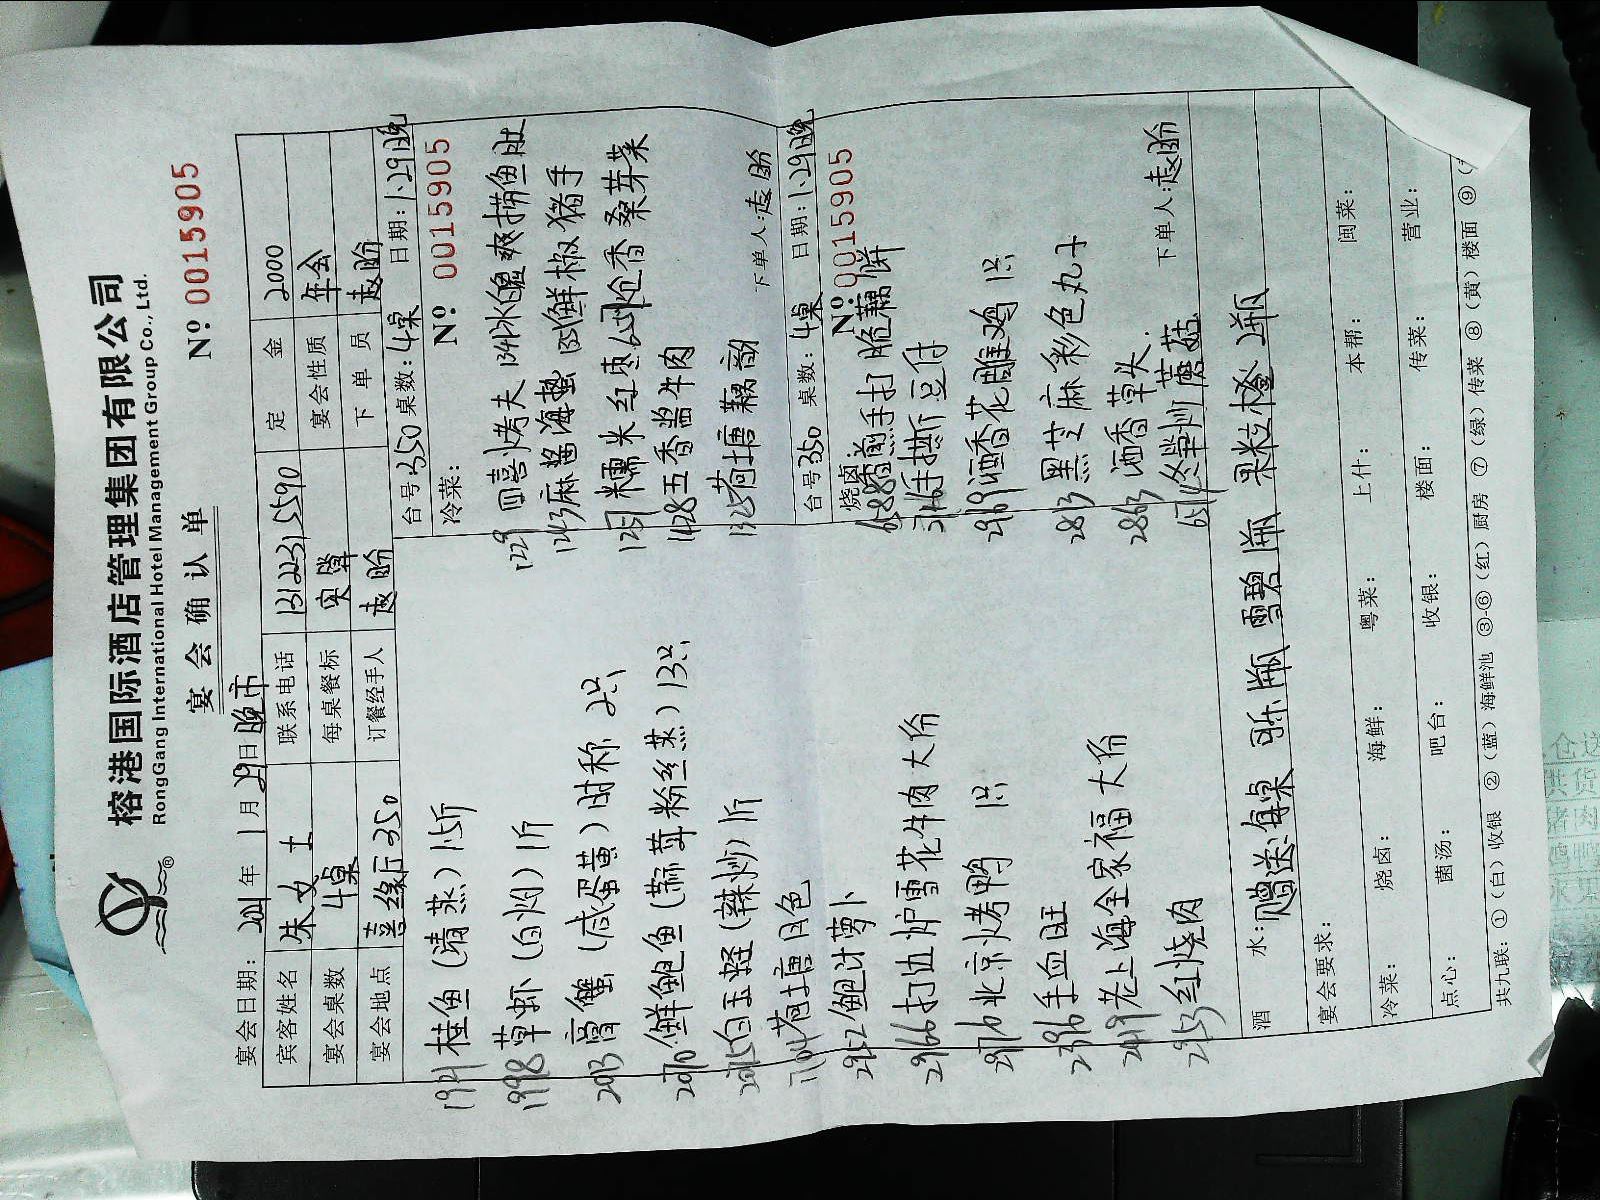 榕港国际酒店管理集团有限公司
RongGang International Hotel Management Group Co., Ltd.
®
宴会确认单
Nº: 0015905
宴会日期: 2011 年 1 月 29 日 晚市
宾客姓名 朱女士 联系电话 13122315590 定金 2000
宴会桌数 4桌 每桌餐标 实单 宴会性质 年会
宴会地点 喜缘厅350 订餐经手人 赵盼 下单员 赵盼
台号350 桌数: 4桌 日期: 1.29晚
冷菜: Nº: 0015905
1229 四喜烤夫 1341 水晶爽捞鱼肚
1243 麻酱海蜇 鲜椒猪手
1251 糯米红枣 炝香桑芽菜
1428 五香酱牛肉
1325 荷塘藕韵
下单人: 赵盼
台号350 桌数: 4桌 日期: 1.29晚
烧卤: Nº: 0015905
6588 香煎手打脆藕饼
手拱斤豆付
2969 酒香花雕鸡 1只
2813 黑芝麻彩色丸子
2863 酒香草头
炒蘑菇
下单人: 赵盼
1921 桂鱼(清蒸) 1.5斤
1998 草虾(白灼) 1斤
2013 膏蟹(咸蛋黄) 时称 2只
2070 鲜鲍鱼(蒜茸粉丝蒸) 13只
2015 白玉蛏(辣炒) 1斤
荷塘月色
2952 鲍汁萝卜
2966 打边炉雪花牛肉 大份
2976 北京烤鸭 1只
2396 手血旺
2449 老上海全家福 大份
2953 红烧肉
酒水: 赠送每桌 可乐1瓶 雪碧1瓶 果粒橙2瓶
宴会要求:
冷菜: 烧卤: 海鲜: 粤菜: 上什: 本帮: 闽菜:
点心: 菌汤: 吧台: 收银: 楼面: 传菜: 营业:
共九联: ①(白)收银 ②(蓝)海鲜池 ③-⑥(红)厨房 ⑦(绿)传菜 ⑧(黄)楼面 ⑨